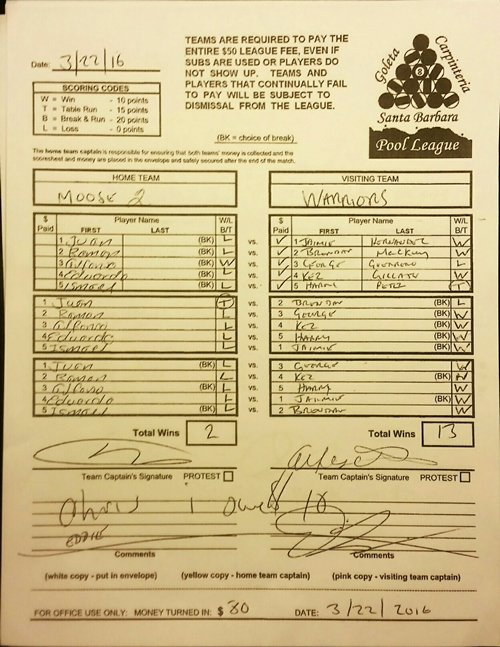 Date: 3/22/16
TEAMS ARE REQUIRED TO PAY THE
ENTIRE $50 LEAGUE FEE, EVEN IF
SUBS ARE USED OR PLAYERS DO
NOT SHOW UP. TEAMS AND
PLAYERS THAT CONTINUALLY FAIL
TO PAY WILL BE SUBJECT TO
DISMISSAL FROM THE LEAGUE.
Goleta Carpinteria
8
Santa Barbara
Pool League
SCORING CODES
W = Win - 10 points
T = Table Run - 15 points
B = Break & Run - 20 points
L = Loss - 0 points
(BK = choice of break)
The home team captain is responsible for ensuring that both teams' money is collected and the
scoresheet and money are placed in the envelope and safely secured after the end of the match.
HOME TEAM VISITING TEAM
MOOSE 2 WARRIORS
$ Paid Player Name FIRST LAST W/L B/T $ Paid Player Name FIRST LAST W/L B/T
1 JUAN (BK) L vs. ✓ 1 JAIMIE HERNANDEZ W
2 Ramon (BK) L vs. ✓ 2 BRENDAN W
3 Alfonso (BK) W vs. ✓ 3 GEORGE GUERRERO L
4 Eduardo (BK) L vs. ✓ 4 KEZ W
5 ISMAEL (BK) L vs. ✓ 5 HARRY PETE T
1 JUAN T vs. 2 BRENDAN (BK) L
2 Ramon L vs. 3 GEORGE (BK) W
3 Alfonso L vs. 4 KEZ (BK) W
4 Eduardo L vs. 5 HARRY (BK) W
5 ISMAEL L vs. 1 JAIMIE (BK) W
1 JUAN (BK) L vs. 3 GEORGE W
2 Ramon L vs. 4 KEZ (BK) W
3 Alfonso (BK) L vs. 5 HARRY W
4 Eduardo L vs. 1 JAIMIE (BK) W
5 ISMAEL (BK) L vs. 2 BRENDAN W
Total Wins 2 Total Wins 13
Team Captain's Signature PROTEST Team Captain's Signature PROTEST
Chris I owe 10
EDDIE
Comments Comments
(white copy - put in envelope) (yellow copy - home team captain) (pink copy - visiting team captain)
FOR OFFICE USE ONLY: MONEY TURNED IN: $ 80 DATE: 3/22/2016